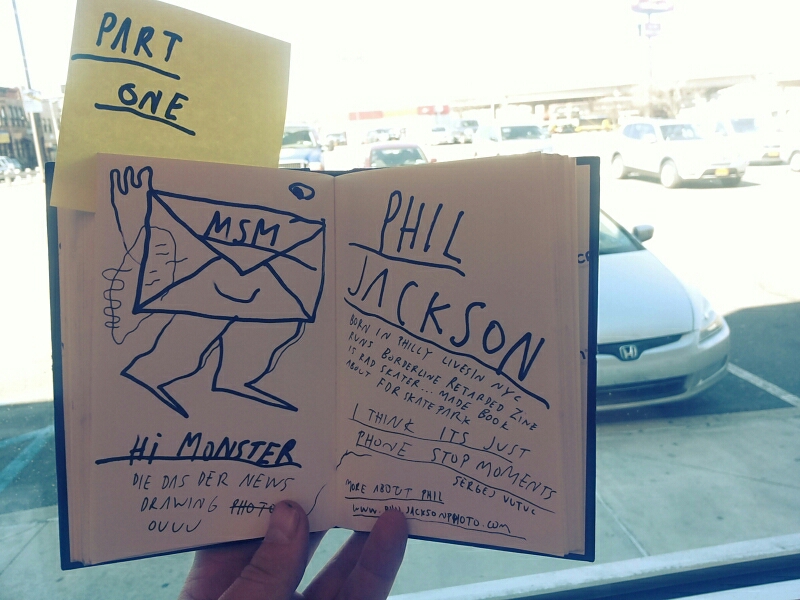 PART
ONE
MSM
Hi MONSTER
DIE DAS DER NEWS
DRAWING PHOTO
OUUU
PHIL
JACKSON
BORN IN PHILLY LIVES IN NYC
RUNS BORDERLINE RETARDED ZINE
IS RAD SKATER... MADE BOOK
ABOUT FOR SKATEPARK
I THINK ITS JUST
PHONE STOP MOMENTS
SERGEJ VUTUC
MORE ABOUT PHIL